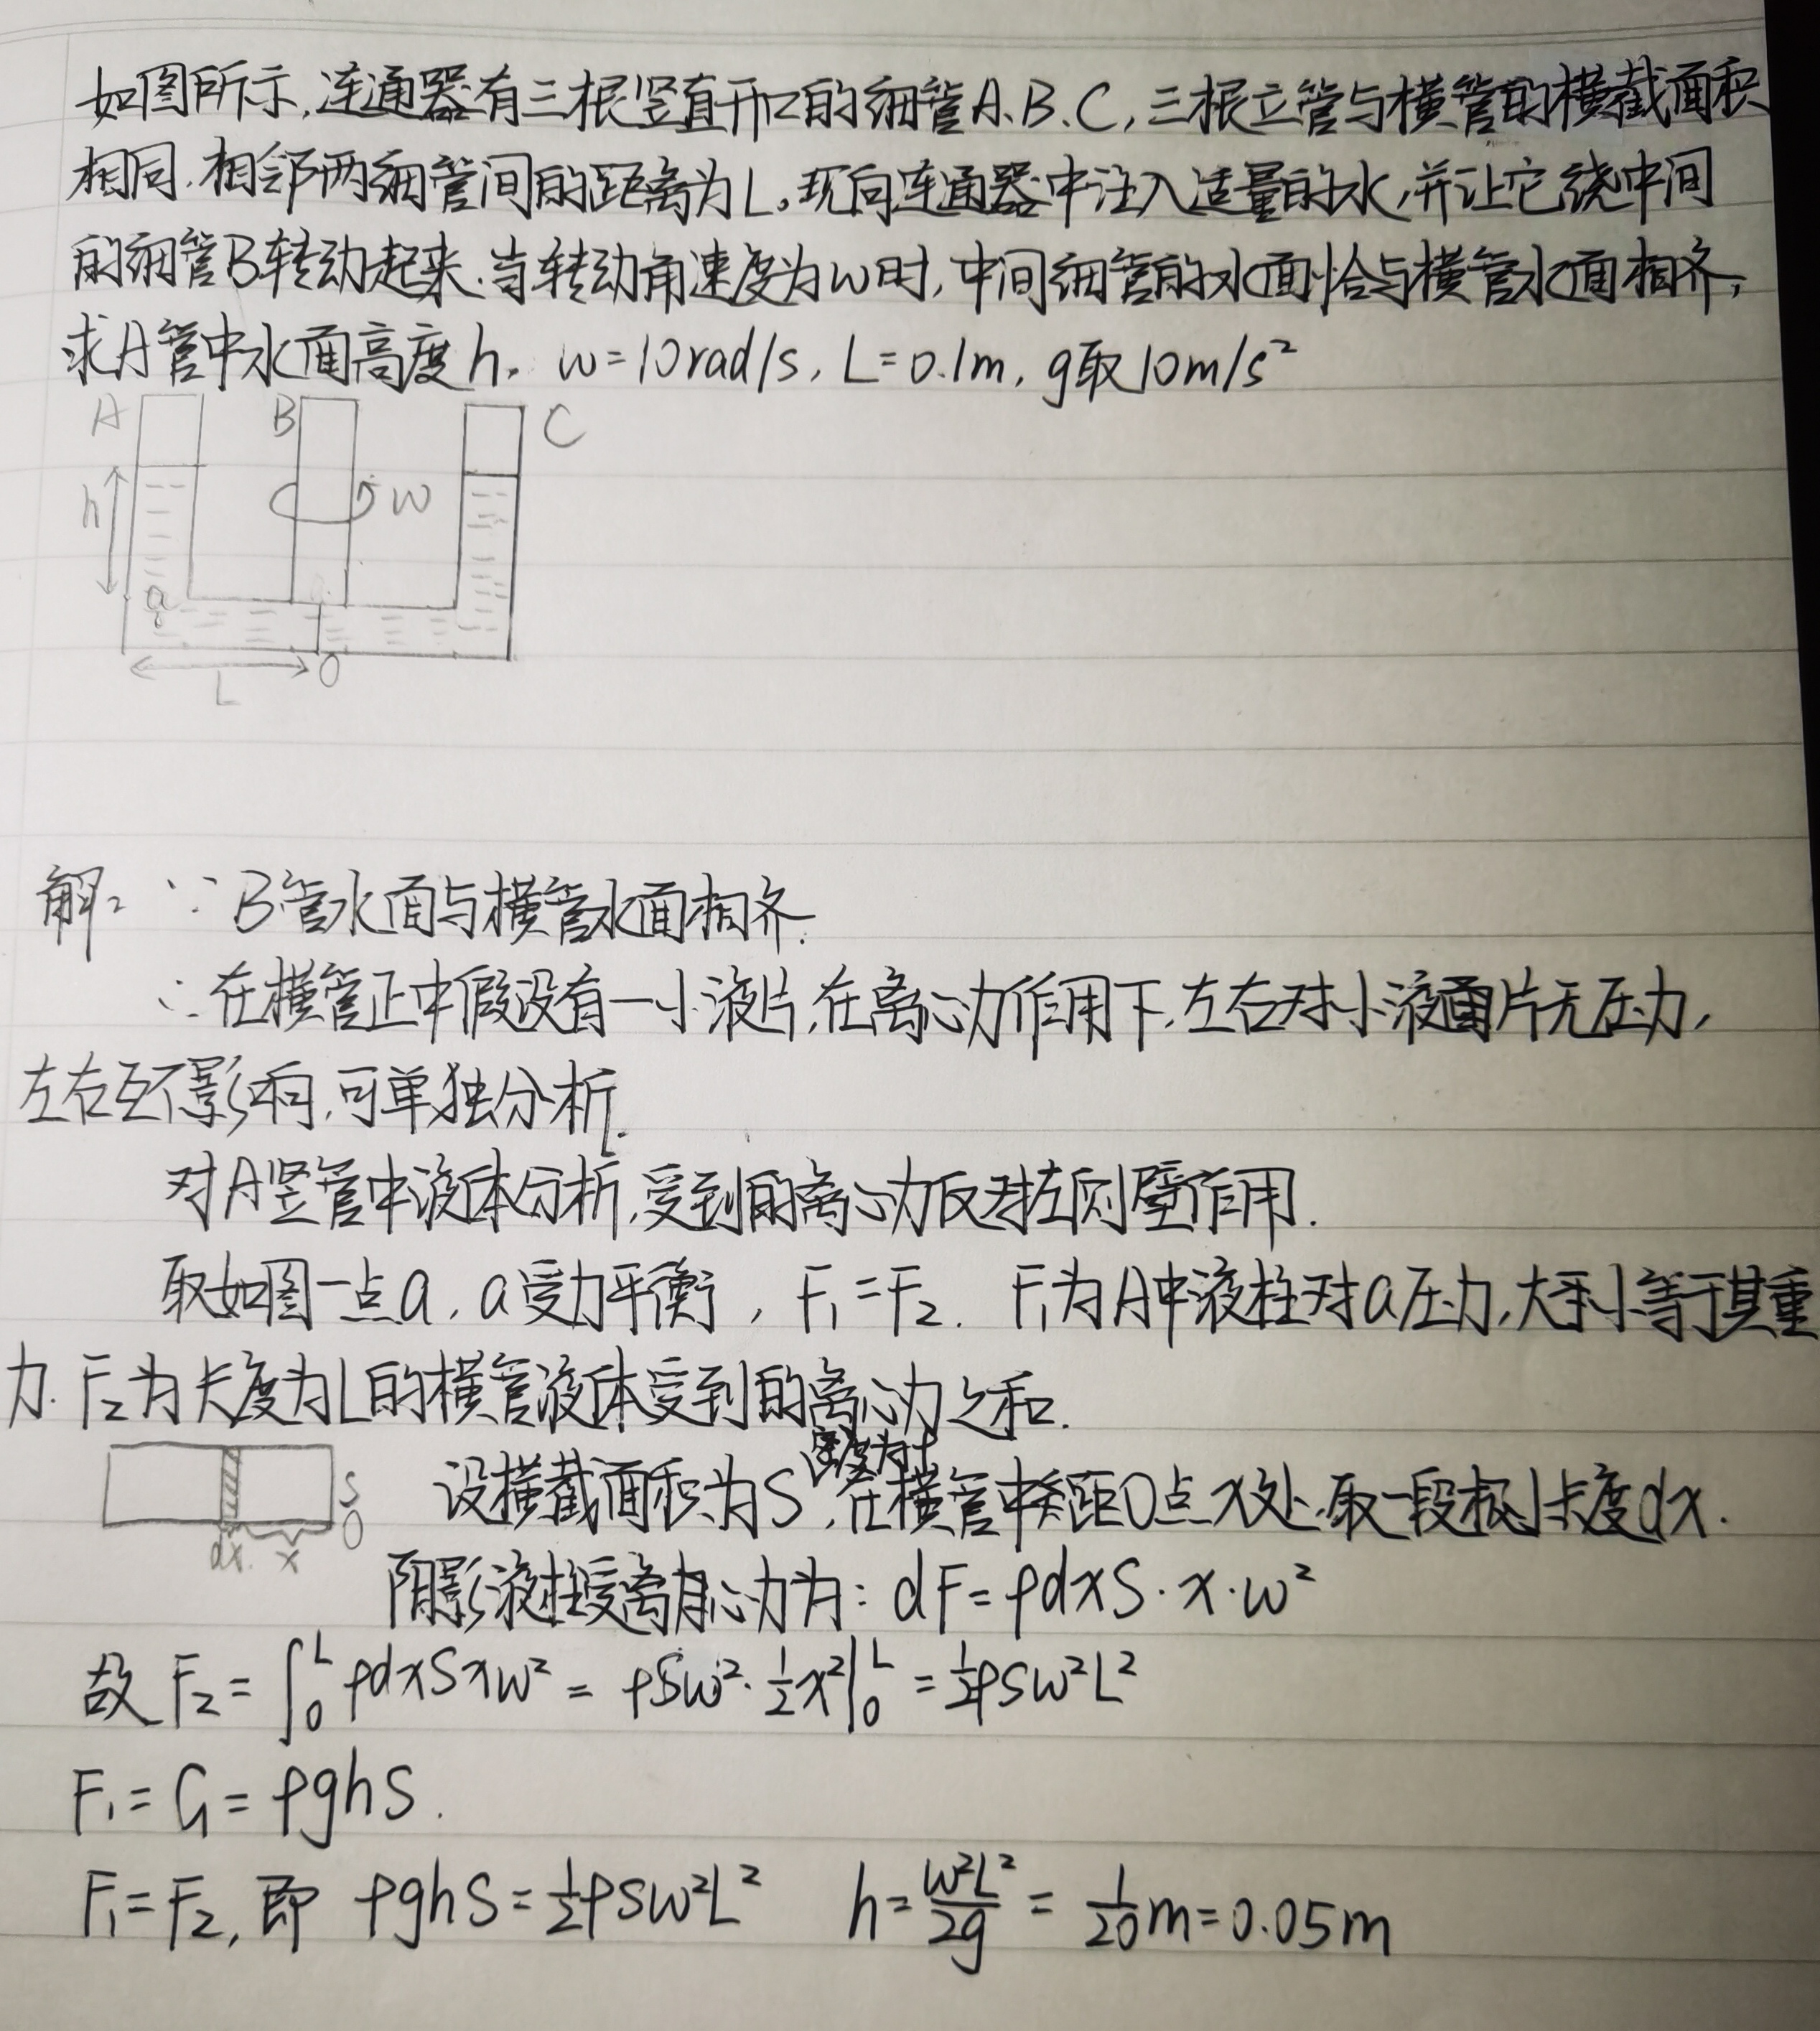 如图所示,连通器有三根竖直开口的细管A、B、C,三根立管与横管的横截面积
相同.相邻两细管间的距离为L。现向连通器中注入适量的水,并让它绕中间
的细管B转动起来.当转动角速度为ω时,中间细管的水面恰与横管水面相齐,
求A管中水面高度h. ω=10rad/s, L=0.1m, g取10m/s²
A B C
h ω
a
L O
解: ∵B管水面与横管水面相齐.
∴在横管正中假设有一小液片,在离心力作用下,左右对小液片无压力,
左右互不影响,可单独分析.
对A竖管中液体分析,受到的离心力仅对左侧壁作用.
取如图一点a, a受力平衡, F₁=F₂. F₁为A中液柱对a压力,大小等于其重
力. F₂为长度为L的横管液体受到的离心力之和.
设横截面积为S,密度为ρ,在横管中距O点x处,取一段极小长度dx.
S
dx x O
阴影液柱受离心力为: dF=ρdxS·x·ω²
故 F₂=∫₀ᴸ ρdxSxω² = ρSω²·½x²|₀ᴸ = ½ρSω²L²
F₁=G=ρghS.
F₁=F₂,即 ρghS=½ρSω²L² h=ω²L²/2g = 1/20 m=0.05m